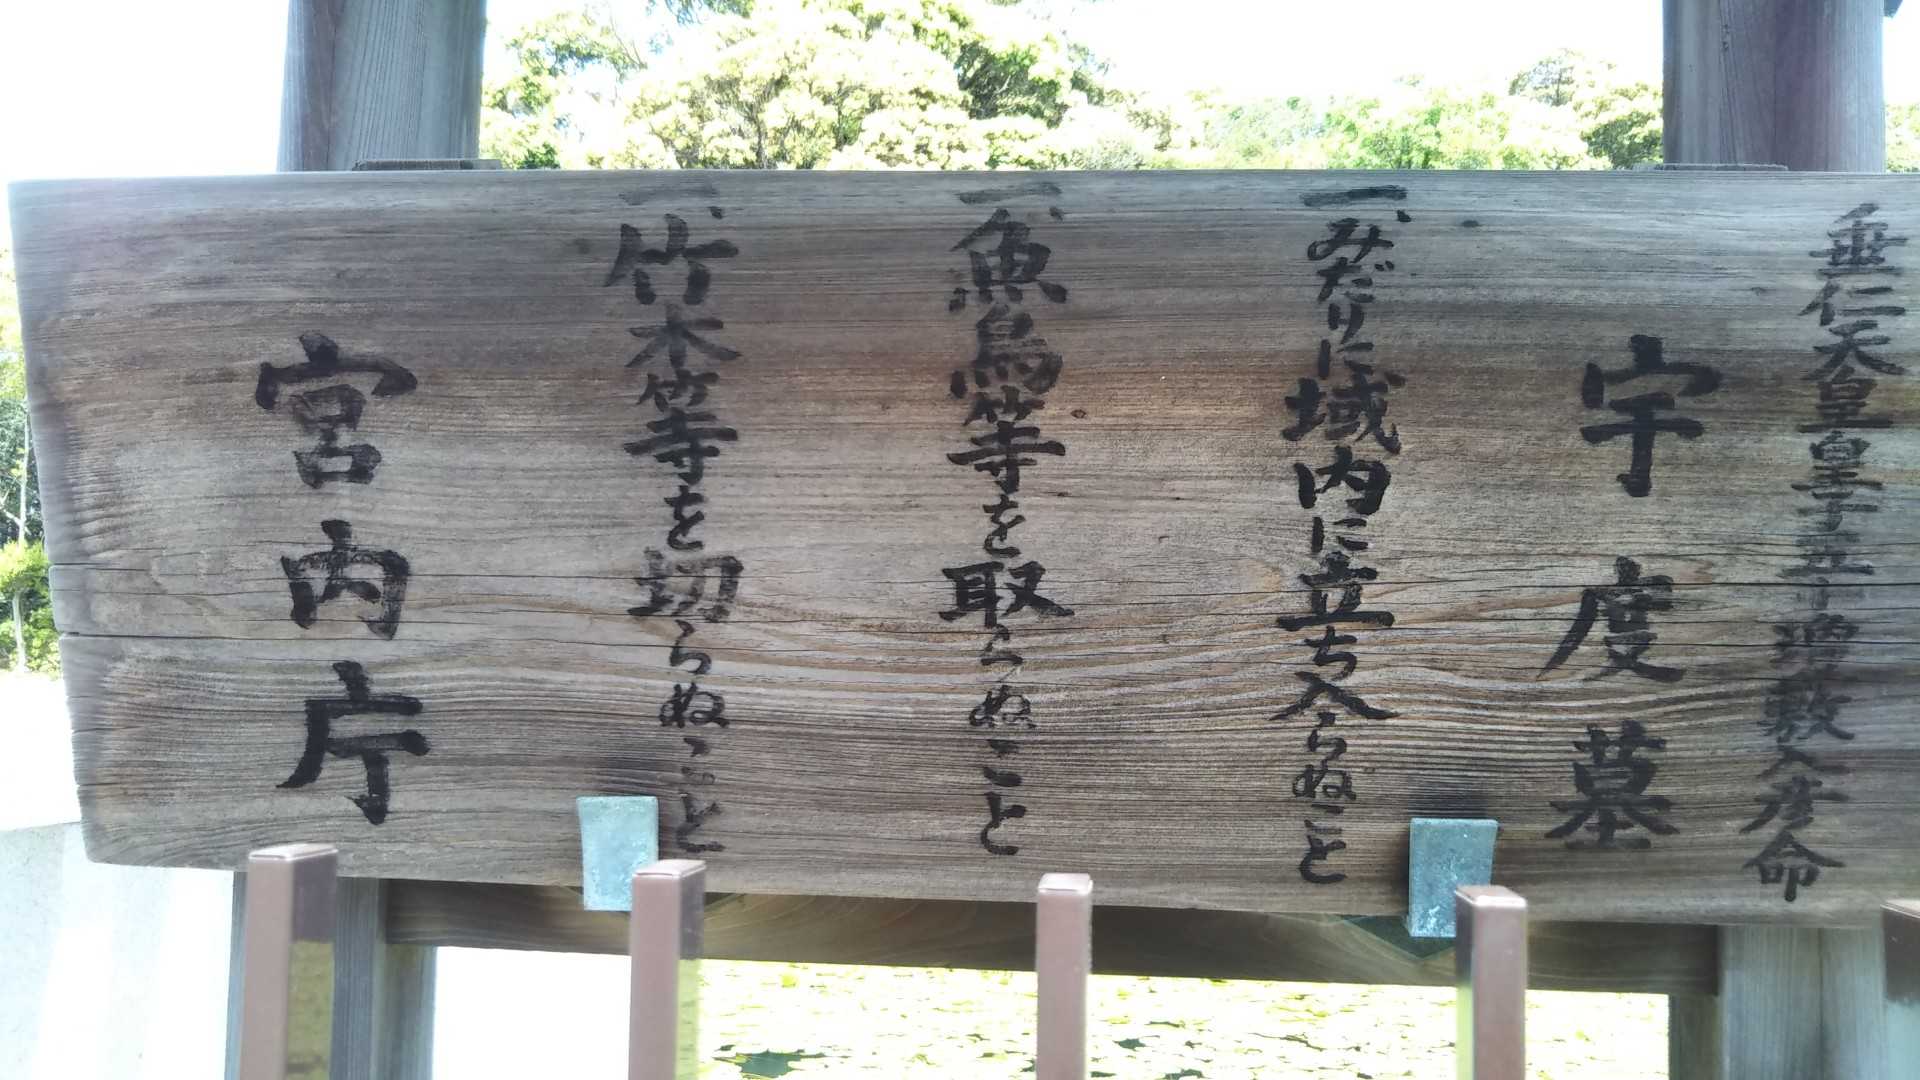 垂仁天皇皇子五十瓊敷入彦命
宇度墓
一、みだりに域内に立ち入らぬこと
一、魚鳥等を取らぬこと
一、竹木等を切らぬこと
宮内庁